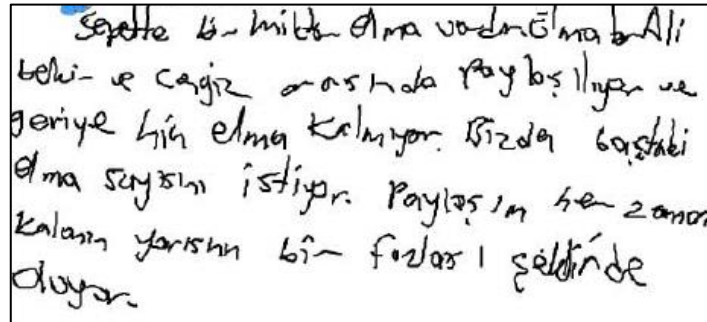 Sepette bir miktar elma vardır. Elmalar Ali
bekir ve Cengiz arasında paylaşılıyor ve
geriye hiç elma kalmıyor. Bizden baştaki
elma sayısını istiyor. Paylaşım her zaman
kalanın yarısının bir fazlası şeklinde
oluyor.